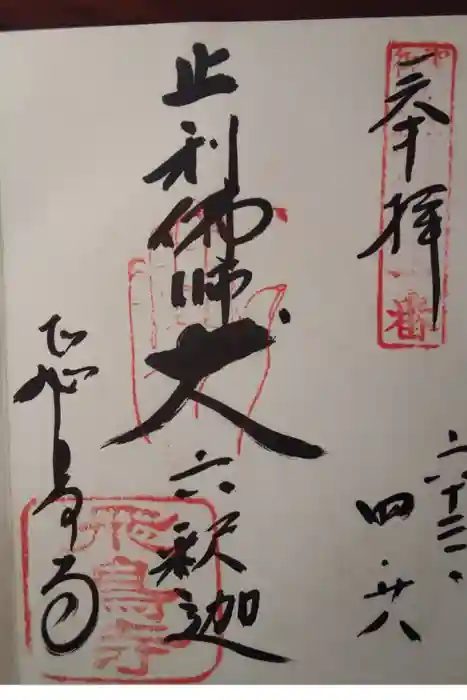 奉拝
六十三・
四・廿八
止利佛師
丈六釈迦
飛鳥寺
飛鳥寺